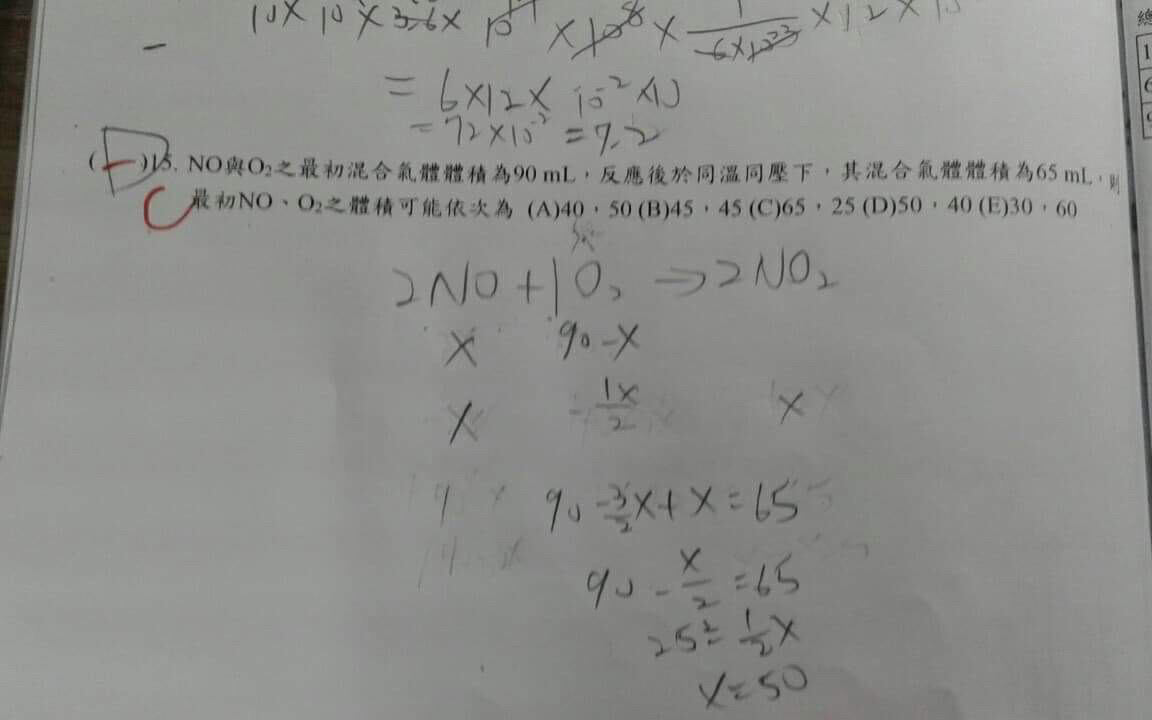 10 × 10 × 3.6 × 10 × 10⁸ × 1/6×10²³ × 12 × 10
= 6×12× 10⁻² ×10
= 72×10⁻² = 7.2
( )15. NO與O₂之最初混合氣體體積為90 mL，反應後於同溫同壓下，其混合氣體體積為65 mL，則
C 最初NO、O₂之體積可能依次為 (A)40，50 (B)45，45 (C)65，25 (D)50，40 (E)30，60
2NO + 1O₂ → 2NO₂
x 90-x
x - 1x/2 x
90 - 3/2 x + x = 65
90 - x/2 = 65
25 = 1/2 x
x = 50
總
1
6
9